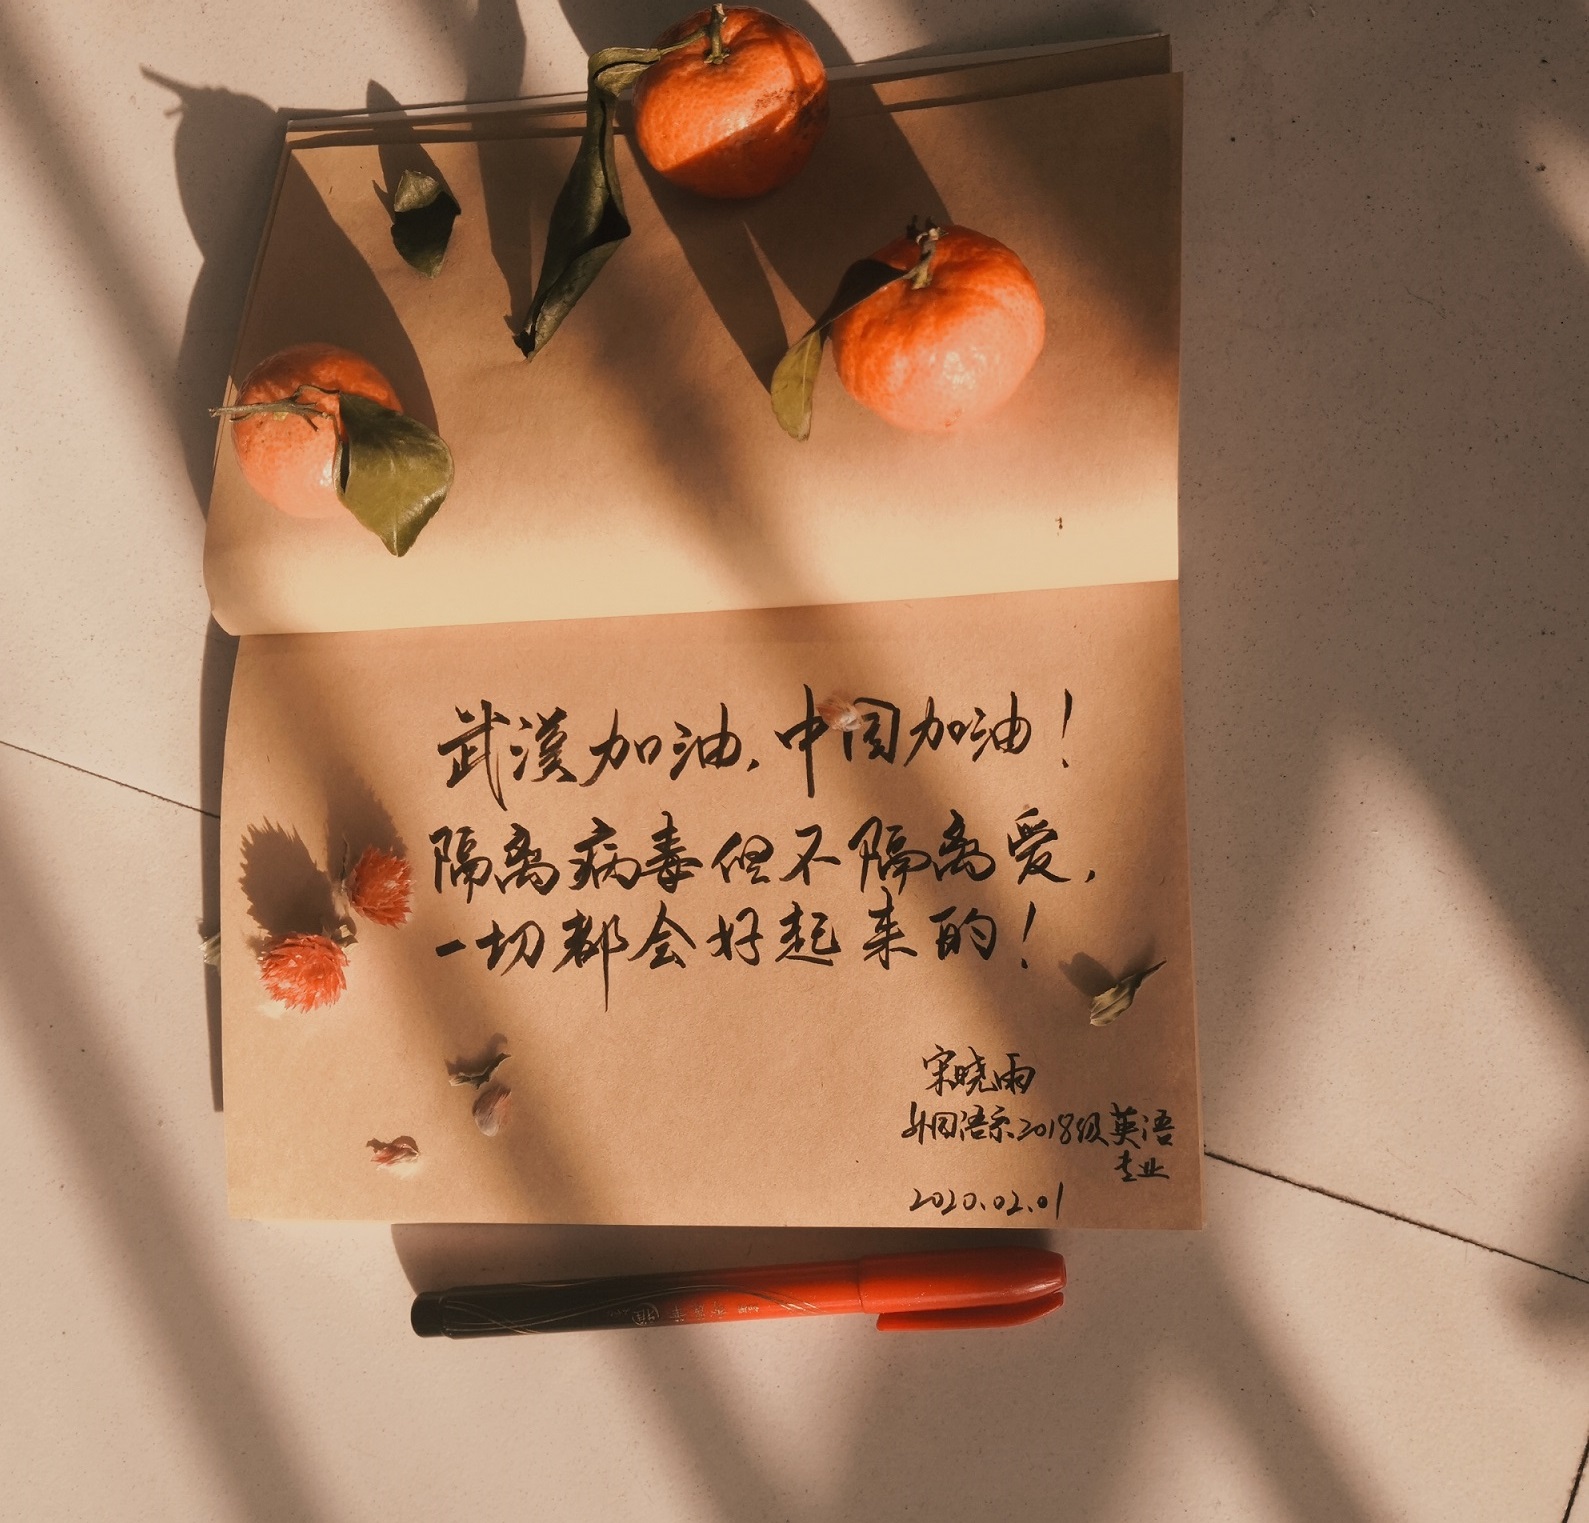 武漢加油，中国加油！
隔离病毒但不隔离爱，
一切都会好起来的！
宋晓雨
外国语系2018级英语
专业
2020.02.01